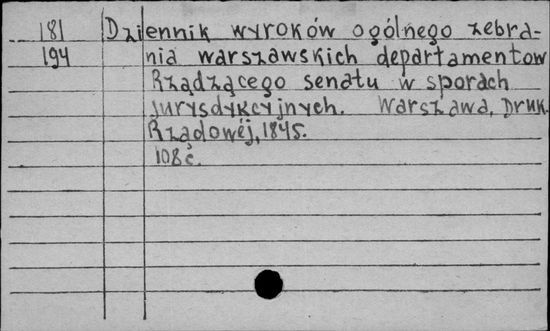 181 Dziennik wyroków ogólnego zebra-
194 nia warszawskich departamentow
Rządzącego senatu w sporach
jurysdykcyjnych. Warszawa, Druk.
Rządowéj, 1845.
108 с.